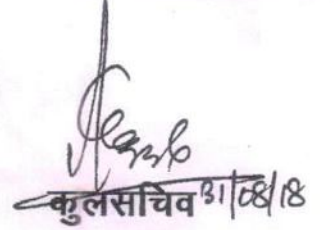 कुलसचिव 31/08/18